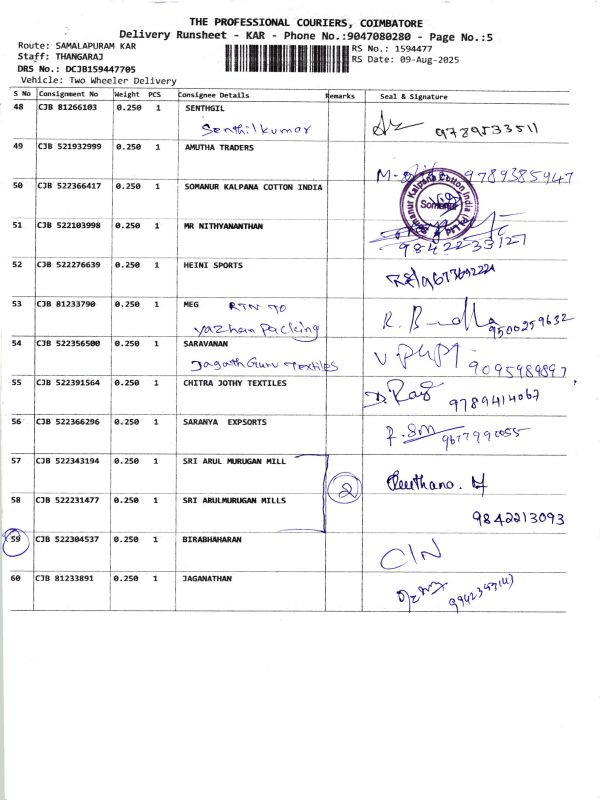 THE PROFESSIONAL COURIERS, COIMBATORE
Delivery Runsheet - KAR - Phone No.:9047080280 - Page No.:5
Route: SAMALAPURAM KAR
RS No.: 1594477
Staff: THANGARAJ
RS Date: 09-Aug-2025
DRS No.: DCJB159447705
Vehicle: Two Wheeler Delivery
S No Consignment No Weight PCS Consignee Details Remarks Seal & Signature
48 CJB 81266103 0.250 1 SENTHGIL
Senthilkumar 9789533511
49 CJB 521932999 0.250 1 AMUTHA TRADERS
9789385947
50 CJB 522366417 0.250 1 SOMANUR KALPANA COTTON INDIA
Somanur Kalpana Cotton India (P) Ltd
Somanur
51 CJB 522103998 0.250 1 MR NITHYANANTHAN
9842235127
52 CJB 522276639 0.250 1 HEINI SPORTS
53 CJB 81233790 0.250 1 MEG RTN TO
Yazhem Packing 9500259632
54 CJB 522356500 0.250 1 SARAVANAN
Jagath Guru Textiles 9095989897
55 CJB 522391564 0.250 1 CHITRA JOTHY TEXTILES
9789414067
56 CJB 522366296 0.250 1 SARANYA EXPSORTS
9677990055
57 CJB 522343194 0.250 1 SRI ARUL MURUGAN MILL
2
58 CJB 522231477 0.250 1 SRI ARULMURUGAN MILLS
9842213093
59 CJB 522304537 0.250 1 BIRABHAHARAN
C/N
60 CJB 81233891 0.250 1 JAGANATHAN